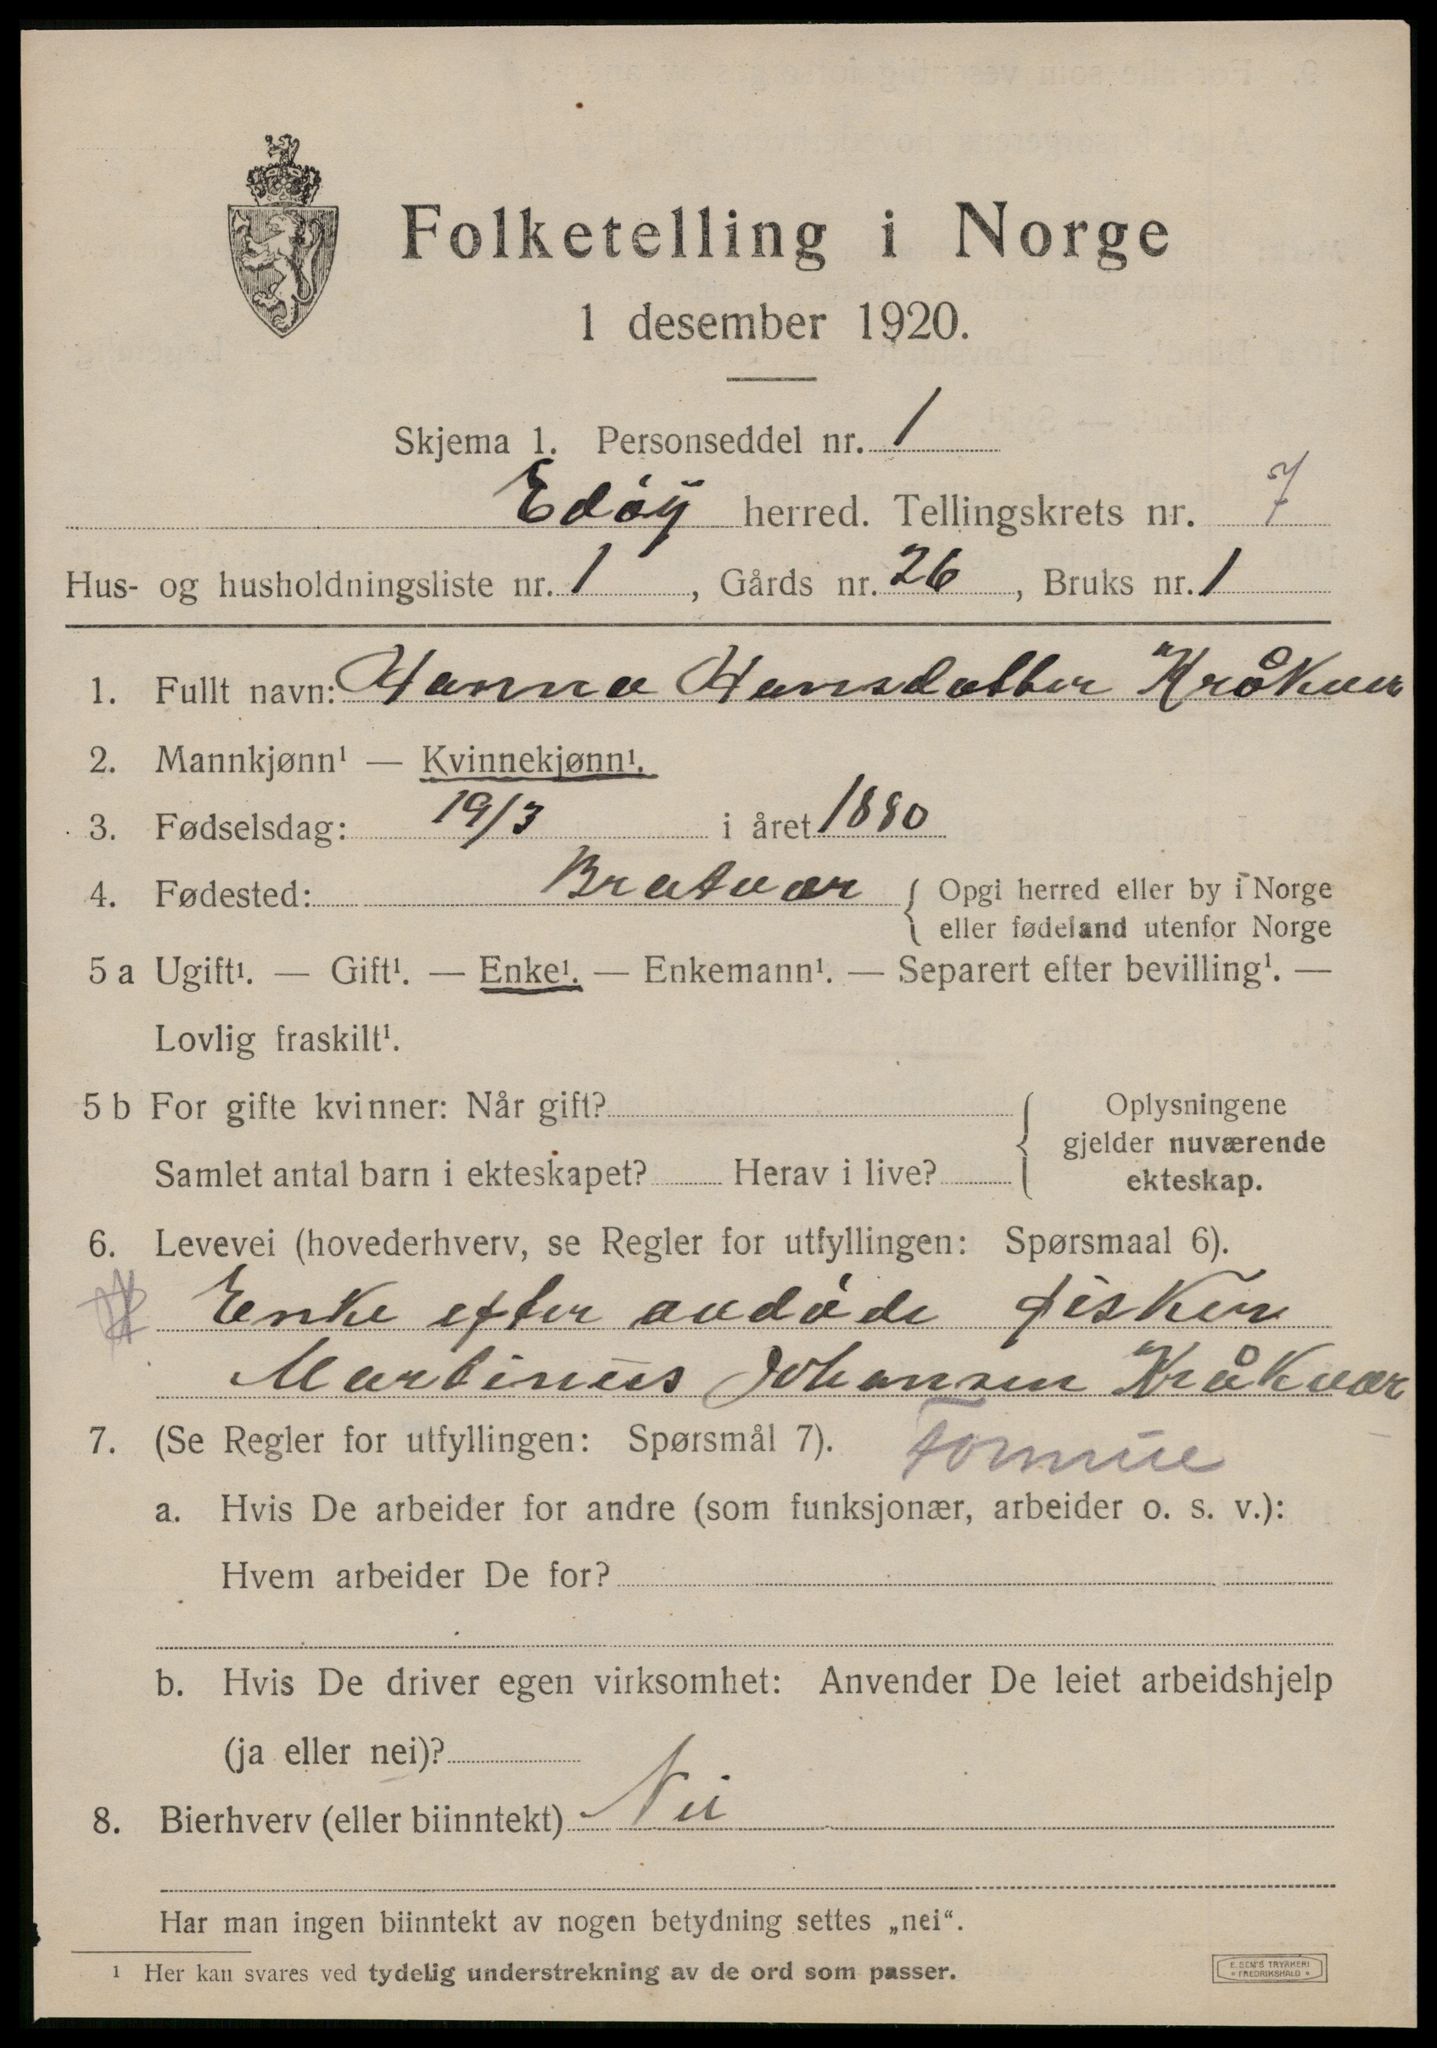 Folketelling i Norge
1 desember 1920.
Skjema 1. Personseddel nr. 1
Edöy herred. Tellingskrets nr. 7
Hus- og husholdningsliste nr. 1, Gårds nr. 26, Bruks nr. 1
1. Fullt navn: Hanna Hansdatter Kråkvær
2. Mannkjønn¹ — Kvinnekjønn¹.
3. Fødselsdag: 19/3 i året 1880
4. Fødested: Bratvær { Opgi herred eller by i Norge
eller fødeland utenfor Norge
5 a Ugift¹. — Gift¹. — Enke¹. — Enkemann¹. — Separert efter bevilling¹. —
Lovlig fraskilt¹.
5 b For gifte kvinner: Når gift? { Oplysningene
gjelder nuværende
Samlet antal barn i ekteskapet? Herav i live? ekteskap.
6. Levevei (hovederhverv, se Regler for utfyllingen: Spørsmaal 6).
Enke efter avdöde fisker
Martinus Johansen Kråkvær
7. (Se Regler for utfyllingen: Spørsmål 7). Formue
a. Hvis De arbeider for andre (som funksjonær, arbeider o. s. v.):
Hvem arbeider De for?
b. Hvis De driver egen virksomhet: Anvender De leiet arbeidshjelp
(ja eller nei)?
8. Bierhverv (eller biinntekt) Nei
Har man ingen biinntekt av nogen betydning settes „nei“.
¹ Her kan svares ved tydelig understrekning av de ord som passer.
E. SEM'S TRYKKERI
FREDRIKSHALD